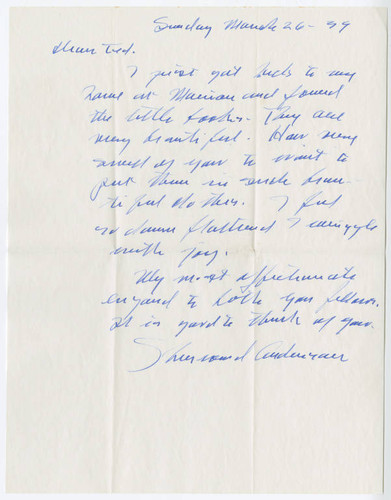 Sunday March 26 - 39
Dear Ted.
I just got back to my
home at Marion and found
the little books. They are
very beautiful. How very
sweet of you to want to
put them in such beau-
tiful clothes. I feel
so damn flattered I wriggle
with joy.
My most affectionate
regard to both you fellows.
It is good to think of you.
Sherwood Anderson